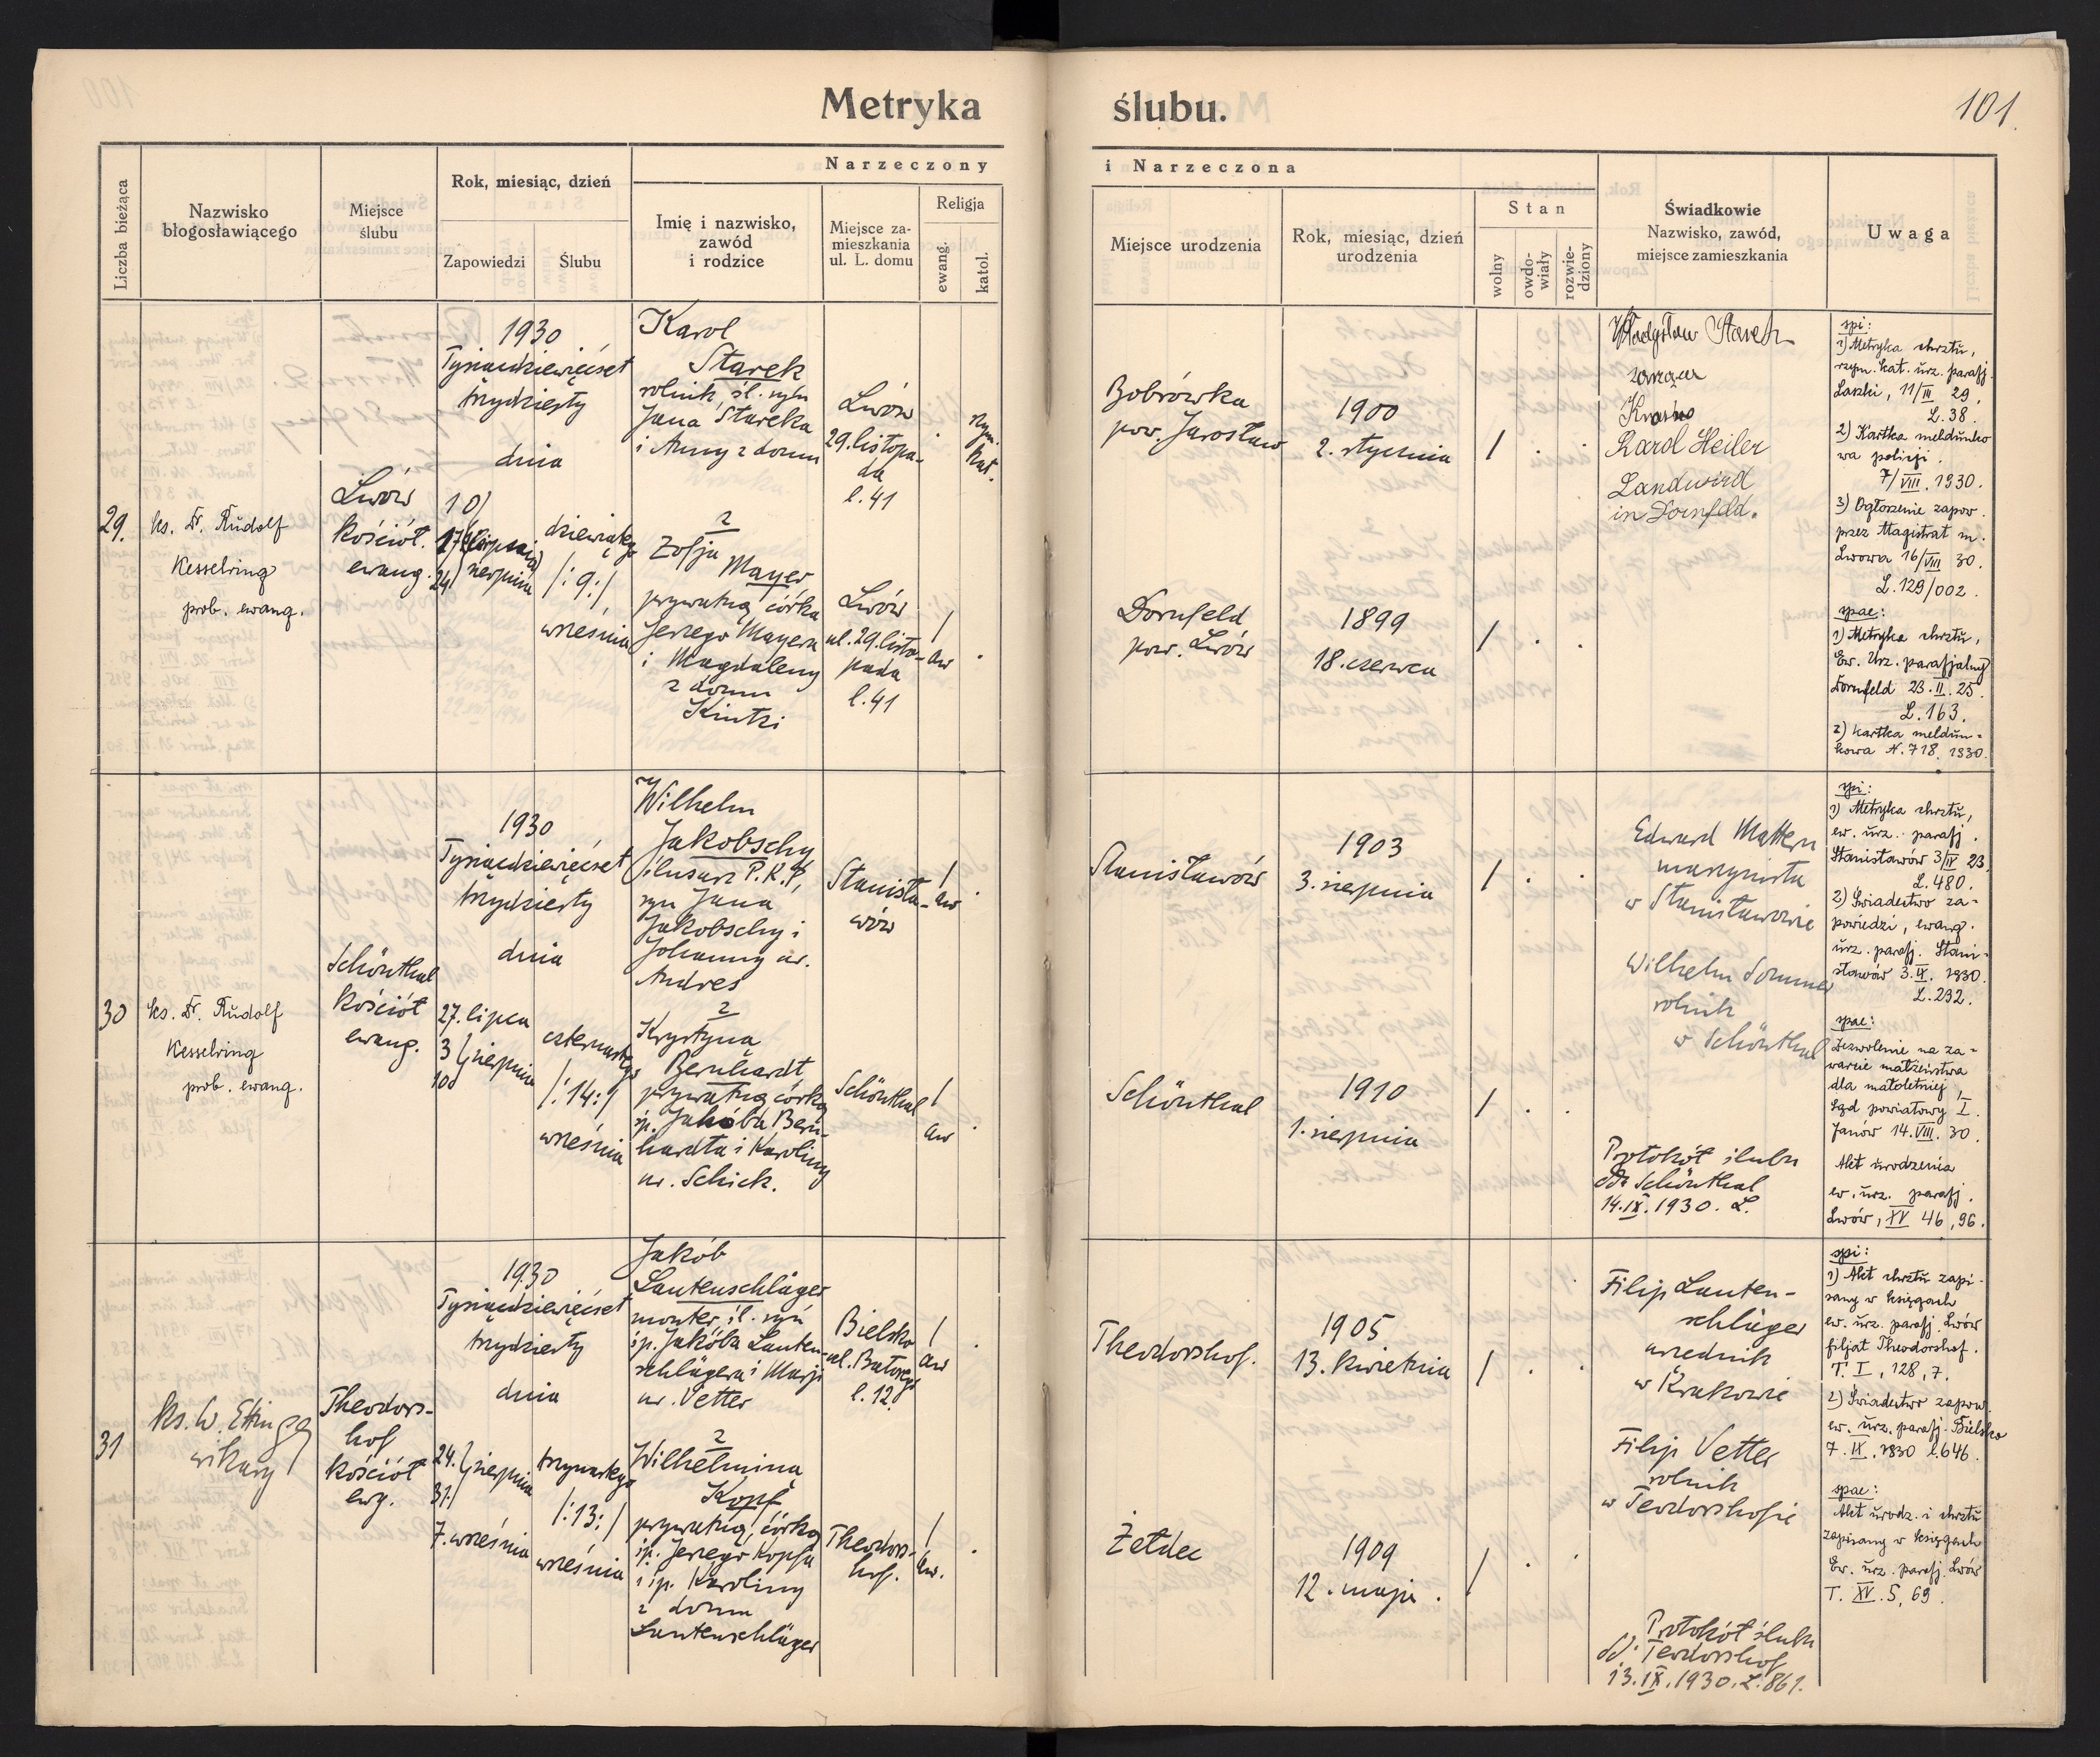 Metryka ślubu.
101.
Liczba bieżąca
Nazwisko
błogosławiącego
Miejsce
ślubu
Rok, miesiąc, dzień
Zapowiedzi
Ślubu
Narzeczony
Imię i nazwisko,
zawód
i rodzice
Miejsce za-
mieszkania
ul. L. domu
Religja
ewang.
katol.
i Narzeczona
Miejsce urodzenia
Rok, miesiąc, dzień
urodzenia
Stan
wolny
owdo-
wiały
rozwie-
dziony
Świadkowie
Nazwisko, zawód,
miejsce zamieszkania
Uwaga
29.
ks. Dr. Rudolf
Kesselring
prob. ewang.
Lwów
kościół
ewang.
1930
Tysiącdziewięćset
trzydziesty
dnia
10)
17)
24) sierpnia
dziewiątego
/:9:/
września
Karol
Starek
rolnik, śl. syn
Jana Stareka
i Anny z domu
Lwów
29. listopa-
da
l. 41
Rzym.
kat.
z
Zofja
Mayer
prywatną, córka
Jerzego Mayera
i Magdaleny
z domu
Kintzi
Lwów
ul. 29. listo-
pada
l. 41
/
aw
Bobrówka
pow. Jarosław
1900
2. stycznia
/ . .
Dornfeld
pow. Lwów
1899
18. czerwca
/ . .
Władysław Starek
Karol Heiler
Landwird
in Dornfeld.
spi:
1) Metryka chrztu,
rzym. kat. urz. parafj.
Laszki, 11/III 29.
L. 38.
2) Kartka meldunko
wa policji.
7/VIII. 1930.
3) Ogłoszenie zapow.
przez Magistrat m.
Lwowa 16/VIII 30.
L. 129/002.
spae:
1) Metryka chrztu,
Ew. Urz. parafjalny
Dornfeld 23.II.25.
L. 163.
2) kartka meldun-
kowa N. 718. 1930.
30
ks. Dr. Rudolf
Kesselring
prob. ewang.
Schönthal
kościół
ewang.
1930
Tysiącdziewięćset
trzydziesty
dnia
27. lipca
3) sierpnia
10)
czternastego
/:14:/
września
Wilhelm
Jakobschy
ślusarz P.K.P.,
syn Jana
Jakobschy i
Johanny ur.
Andres
Stanisła-
wów
/
aw
z
Krystyna
Bernhardt
prywatną córką
śp. Jakóba Bern-
hardta i Karoliny
ur. Schick.
Schönthal
/
aw
Stanisławów
1903
3. sierpnia
/ . .
Schönthal
1910
1. sierpnia
/ . .
Edward Mattern
maszynista
w Stanisławowie
Wilhelm Sommer
rolnik
w Schönthal
Protokół ślubu
dd. Schönthal
14.IX.1930. L.
spi:
1) Metryka chrztu,
ew. urz. parafj.
Stanisławów 3/IV 23.
L. 480.
2) Świadectwo za-
powiedzi, ewang.
urz. parafj. Stani-
sławów 3.IX. 1930.
L. 232.
spae:
Zezwolenie na za-
warcie małżeństwa
dla małoletniej,
Sąd powiatowy I.
Janów 14.VIII. 30.
Akt urodzenia
ew. urz. parafj.
Lwów, XV 46, 96.
31
ks. W. Ettinger
wikary
Theodors-
hof
kościół
ewg.
1930
Tysiącdziewięćset
trzydziesty
dnia
24.) sierpnia
31.)
7. września
trzynastego
/:13:/
września
Jakób
Lautenschläger
monter, śl. syn
śp. Jakóba Lauten-
schlägera i Marji
ur. Vetter
Bielsko
ul. Batorego
l. 12.
/
aw
z
Wilhelmina
Kopf
prywatną, córką
śp. Jerzego Kopfa
i śp. Karoliny
z domu
Lautenschläger
Theodors-
hof.
/
aw.
Theodorshof.
1905
13. kwietnia
/ . .
Żełdec
1909
12. maja.
/ . .
Filip Lauten-
schläger
urzednik
w Krakowie
Filip Vetter
rolnik
w Teodorshofie
Protokół ślubu
dd. Teodorshof
13.IX.1930. L. 861.
spi:
1) Akt chrztu zapi-
sany w księgach
ew. urz. parafj. Lwów
filjał Theodorshof.
T. I, 128, 7.
2) Świadectwo zapow.
ew. urz. parafj. Bielsko
7.IX.1930 l. 646.
spae:
Akt urodz. i chrztu
zapisany w księgach
Ew. urz. parafj. Lwów
T. XV. 5, 69.